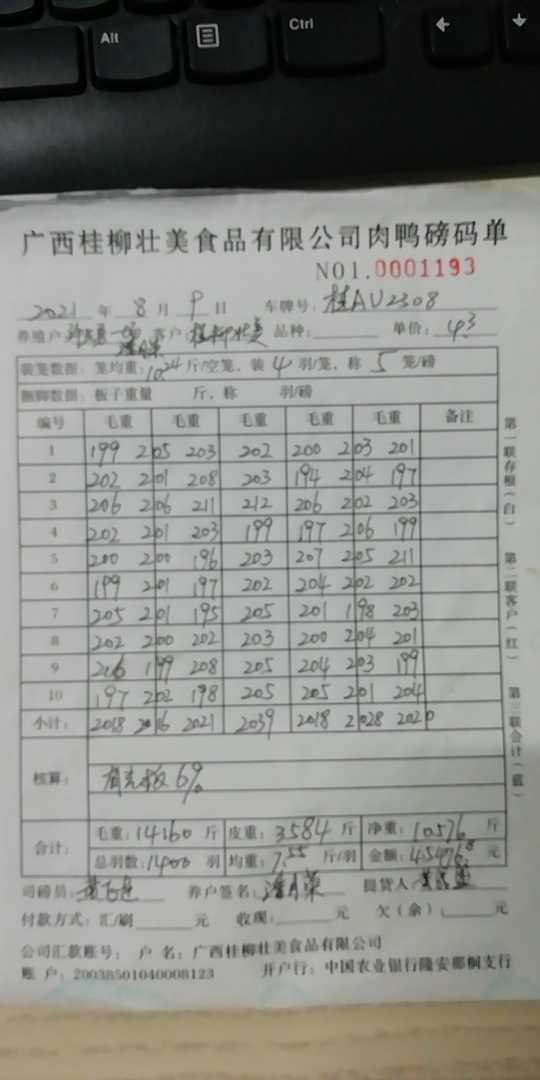 Alt
Ctrl
广西桂柳壮美食品有限公司肉鸭磅码单
NO1.0001193
2021 年 8 月 9 日 车牌号: 桂AU2308
养殖户 客户: 桂柳壮美 品种: 单价: 4.3
装笼数据: 笼均重: 10.24 斤/空笼, 装 4 羽/笼, 称 5 笼/磅
捆脚数据: 板子重量 斤, 称 羽/磅
编号 毛重 毛重 毛重 毛重 毛重 备注
1 199 205 203 202 200 203 201
2 202 201 208 203 194 204 197
3 206 206 211 212 206 202 203
4 202 201 203 199 197 206 199
5 200 200 196 203 207 205 211
6 199 201 197 202 204 202 202
7 205 201 195 205 201 198 203
8 202 200 202 203 200 204 201
9 206 199 208 205 204 203 199
10 197 202 198 205 205 201 204
小计: 2018 2016 2021 2039 2018 2028 2020
核算: 6%
合计: 毛重: 14160 斤 皮重: 3584 斤 净重: 10576 斤
总羽数: 1400 羽 均重: 7.55 斤/羽 金额: 45476.8 元
司磅员: 养户签名: 提货人
付款方式: 汇/刷 元 收现: 元 欠(余): 元
公司汇款账号: 户 名: 广西桂柳壮美食品有限公司
账 户: 20038501040008123 开户行: 中国农业银行隆安那桐支行
第一联存根(白)
第二联客户(红)
第三联会计(蓝)